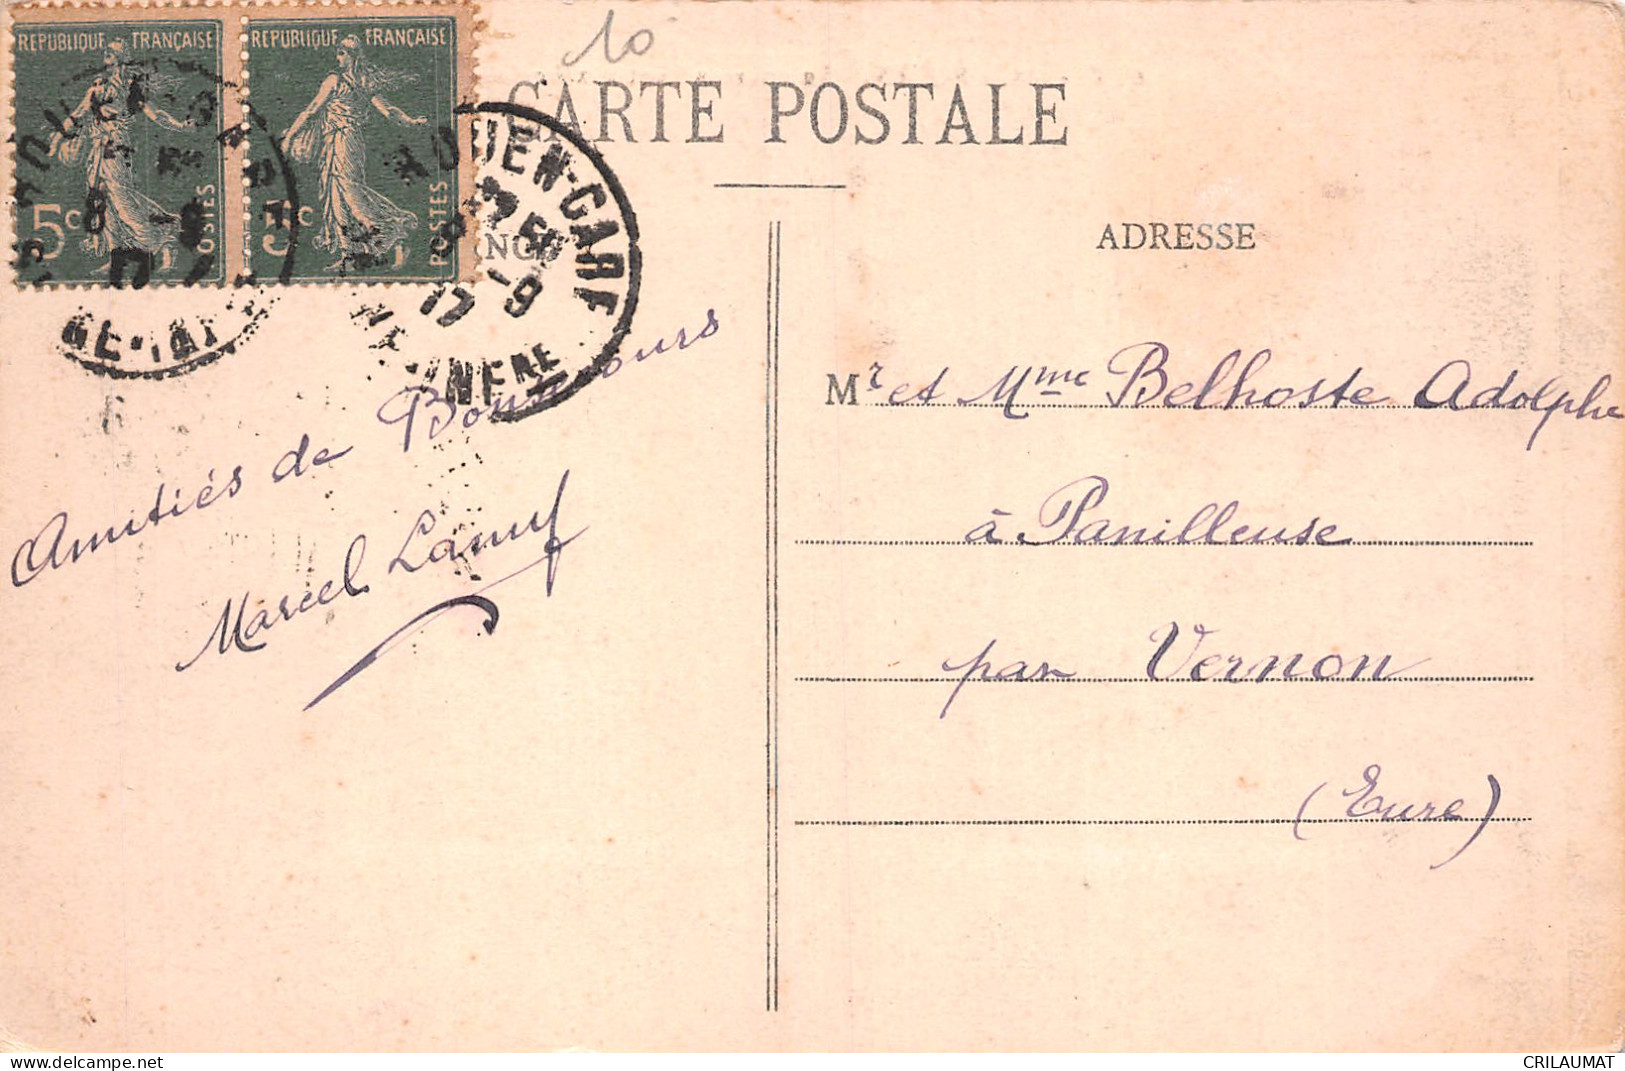 REPUBLIQUE FRANÇAISE
REPUBLIQUE FRANÇAISE
5c POSTES
5c POSTES
10
CARTE POSTALE
ROUEN-GARE
17 -9
ADRESSE
Amitiés de Bonsecours
Marcel Lamy
Mr et Mme Belhoste Adolphe
à Panilleuse
par Vernon
(Eure)
https://www.delcampe.net
CRILAUMAT